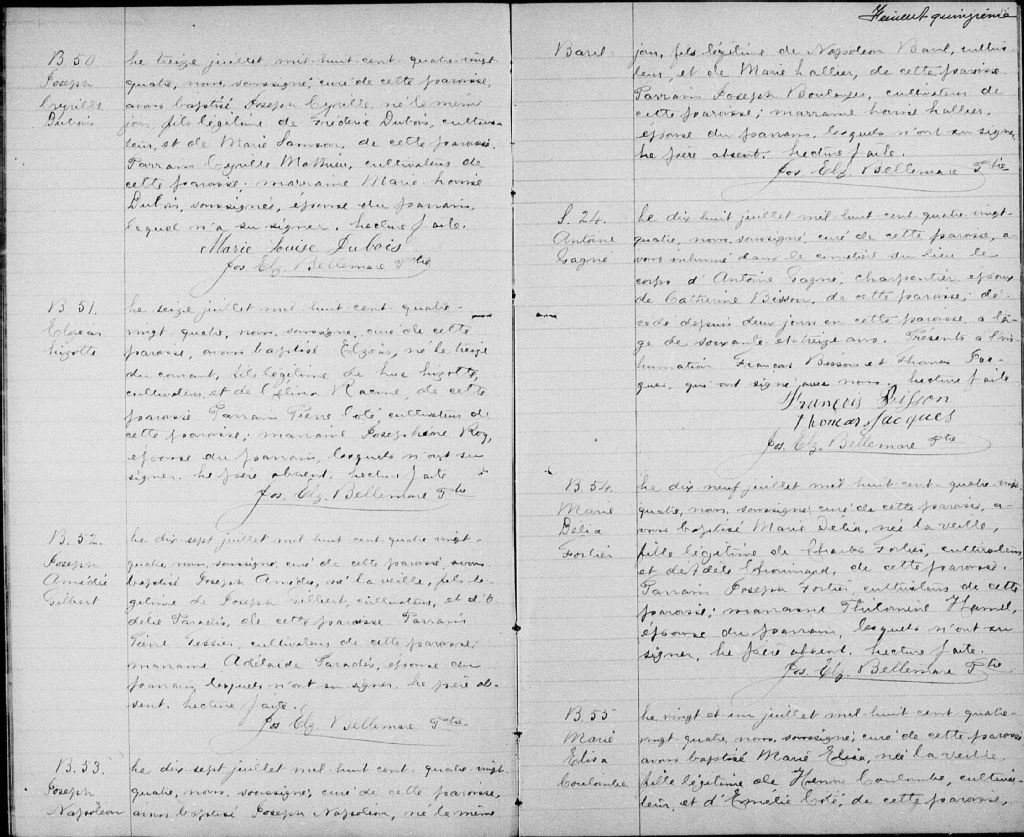 B. 50
Joseph
Cyrille
Dubois
Le treize juillet mil-huit-cent-quatre-vingt-
quatre, nous, soussigné, curé de cette paroisse,
avons baptisé Joseph Cyrille, né le même
jour, fils légitime de Frédéric Dubois, cultiva-
teur, et de Marie Samson, de cette paroisse.
Parrain Cyrille Mathieu, cultivateur de
cette paroisse; marraine Marie-Louise
Dubois, soussignée, épouse du parrain,
lequel n'a su signer. Lecture faite.
Marie Louise Dubois
Jos. Elz. Bellemare Ptre
B 51.
Elzéar
Lizotte
Le seize juillet mil-huit-cent-quatre-
vingt-quatre, nous, soussigné, curé de cette
paroisse, avons baptisé Elzéar, né le treize
du courant, fils légitime de Luc Lizotte,
cultivateur, et de Célina Racine, de cette
paroisse. Parrain Pierre Coté, cultivateur de
cette paroisse; marraine Josephine Roy,
épouse du parrain, lesquels n'ont su
signer. Le père absent. Lecture faite
Jos. Elz. Bellemare Ptre
B. 52.
Joseph
Amédé
Gilbert
Le dix-sept juillet mil huit cent-quatre vingt-
quatre, nous, soussigné, curé de cette paroisse, avons
baptisé Joseph Amédé, né la veille, fils lé-
gitime de Joseph Gilbert, cultivateur, et d'O-
délie Paradis, de cette paroisse. Parrain
Pierre Lessier, cultivateur de cette paroisse;
marraine Adélaïde Paradis, épouse du
parrain, lesquels n'ont su signer. Le père ab-
sent. Lecture faite.
Jos. Elz. Bellemare Ptre
B. 53.
Joseph
Napoléon
Le dix-sept juillet mil-huit-cent-quatre-vingt-
quatre, nous, soussigné, curé de cette paroisse,
avons baptisé Joseph Napoléon, né le même
Feuillet quinzième
Baril
jour, fils légitime de Napoléon Baril, cultiva-
teur, et de Marie Lallier, de cette paroisse.
Parrain Joseph Boulanger, cultivateur de
cette paroisse; marraine Louise Lallier,
épouse du parrain, lesquels n'ont su signer.
Le père absent. Lecture faite.
Jos. Elz. Bellemare Ptre
S. 24.
Antoine
Gagné
Le dix-huit juillet mil-huit-cent-quatre-vingt-
quatre, nous, soussigné, curé de cette paroisse, a-
vons inhumé dans le cimetière du lieu le
corps d'Antoine Gagné, charpentier, époux
de Catherine Bisson, de cette paroisse; dé-
cédé depuis deux jours en cette paroisse, à l'â-
ge de soixante-et-treize ans. Présents à l'in-
humation François Bisson et Thomas Jac-
ques, qui ont signé avec nous. Lecture faite
François Bisson
Thomas Jacques
Jos. Elz. Bellemare Ptre
B. 54.
Marie
Délia
Fortier
Le dix-neuf juillet mil huit-cent-quatre-vingt-
quatre, nous, soussigné, curé de cette paroisse, a-
vons baptisé Marie Délia, née la veille,
fille légitime de Charles Fortier, cultivateur,
et de Adèle Chouinard, de cette paroisse.
Parrain Joseph Fortier, cultivateur de cette
paroisse; marraine Philomène Hamel,
épouse du parrain, lesquels n'ont su
signer, le père absent. Lecture faite.
Jos. Elz. Bellemare Ptre
B. 55
Marie
Elisa
Coulombe
Le vingt et un juillet mil-huit-cent-quatre-
vingt-quatre, nous, soussigné, curé de cette paroisse
avons baptisé Marie Elisa, née la veille
fille légitime de Henri Coulombe, cultiva-
teur, et d'Emélie Coté, de cette paroisse,